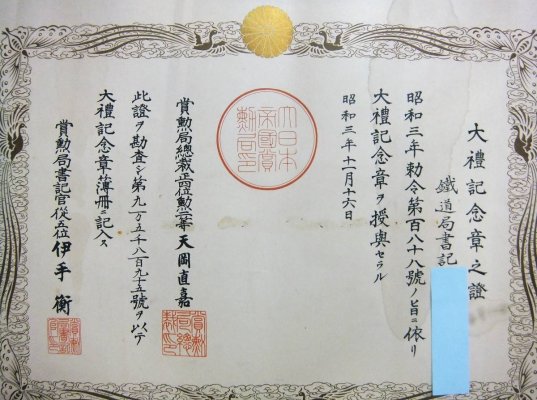 大禮記念章之證
鐵道局書記
昭和三年勅令第百八十八號ノ旨ニ依リ
大禮記念章ヲ授與セラル
昭和三年十一月十六日
大日本
帝國賞
勲局印
賞勲局總裁正四位勲二等天岡直嘉
此證ヲ勘査シ第九万五千八百九十五號ヲ以テ
大禮記念章簿册ニ記入ス
賞勲局書記官從五位伊手衡